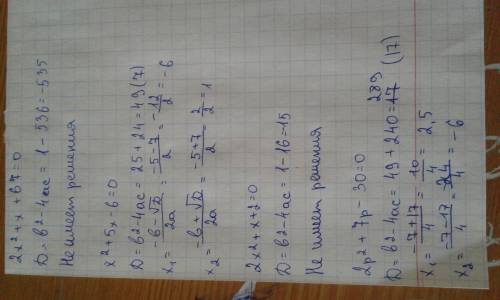 2x²+x+67=0
D=в2-4ас=1-536=-535
Не имеет решения
x²+5x-6=0
D=в2-4ас=25+24=49(7)
x₁=(-в-√D)/2a=(-5-7)/2=-12/2=-6
x₂=(-в+√D)/2a=(-5+7)/2=2/2=1
2x²+x+2=0
D=в2-4ас=1-16=-15
Не имеет решения
2p²+7p-30=0
D=в2-4ас=49+240=17 289 (17)
x₁=(-7+17)/4=10/4=2,5
x₂=(-7-17)/4=-24/4=-6